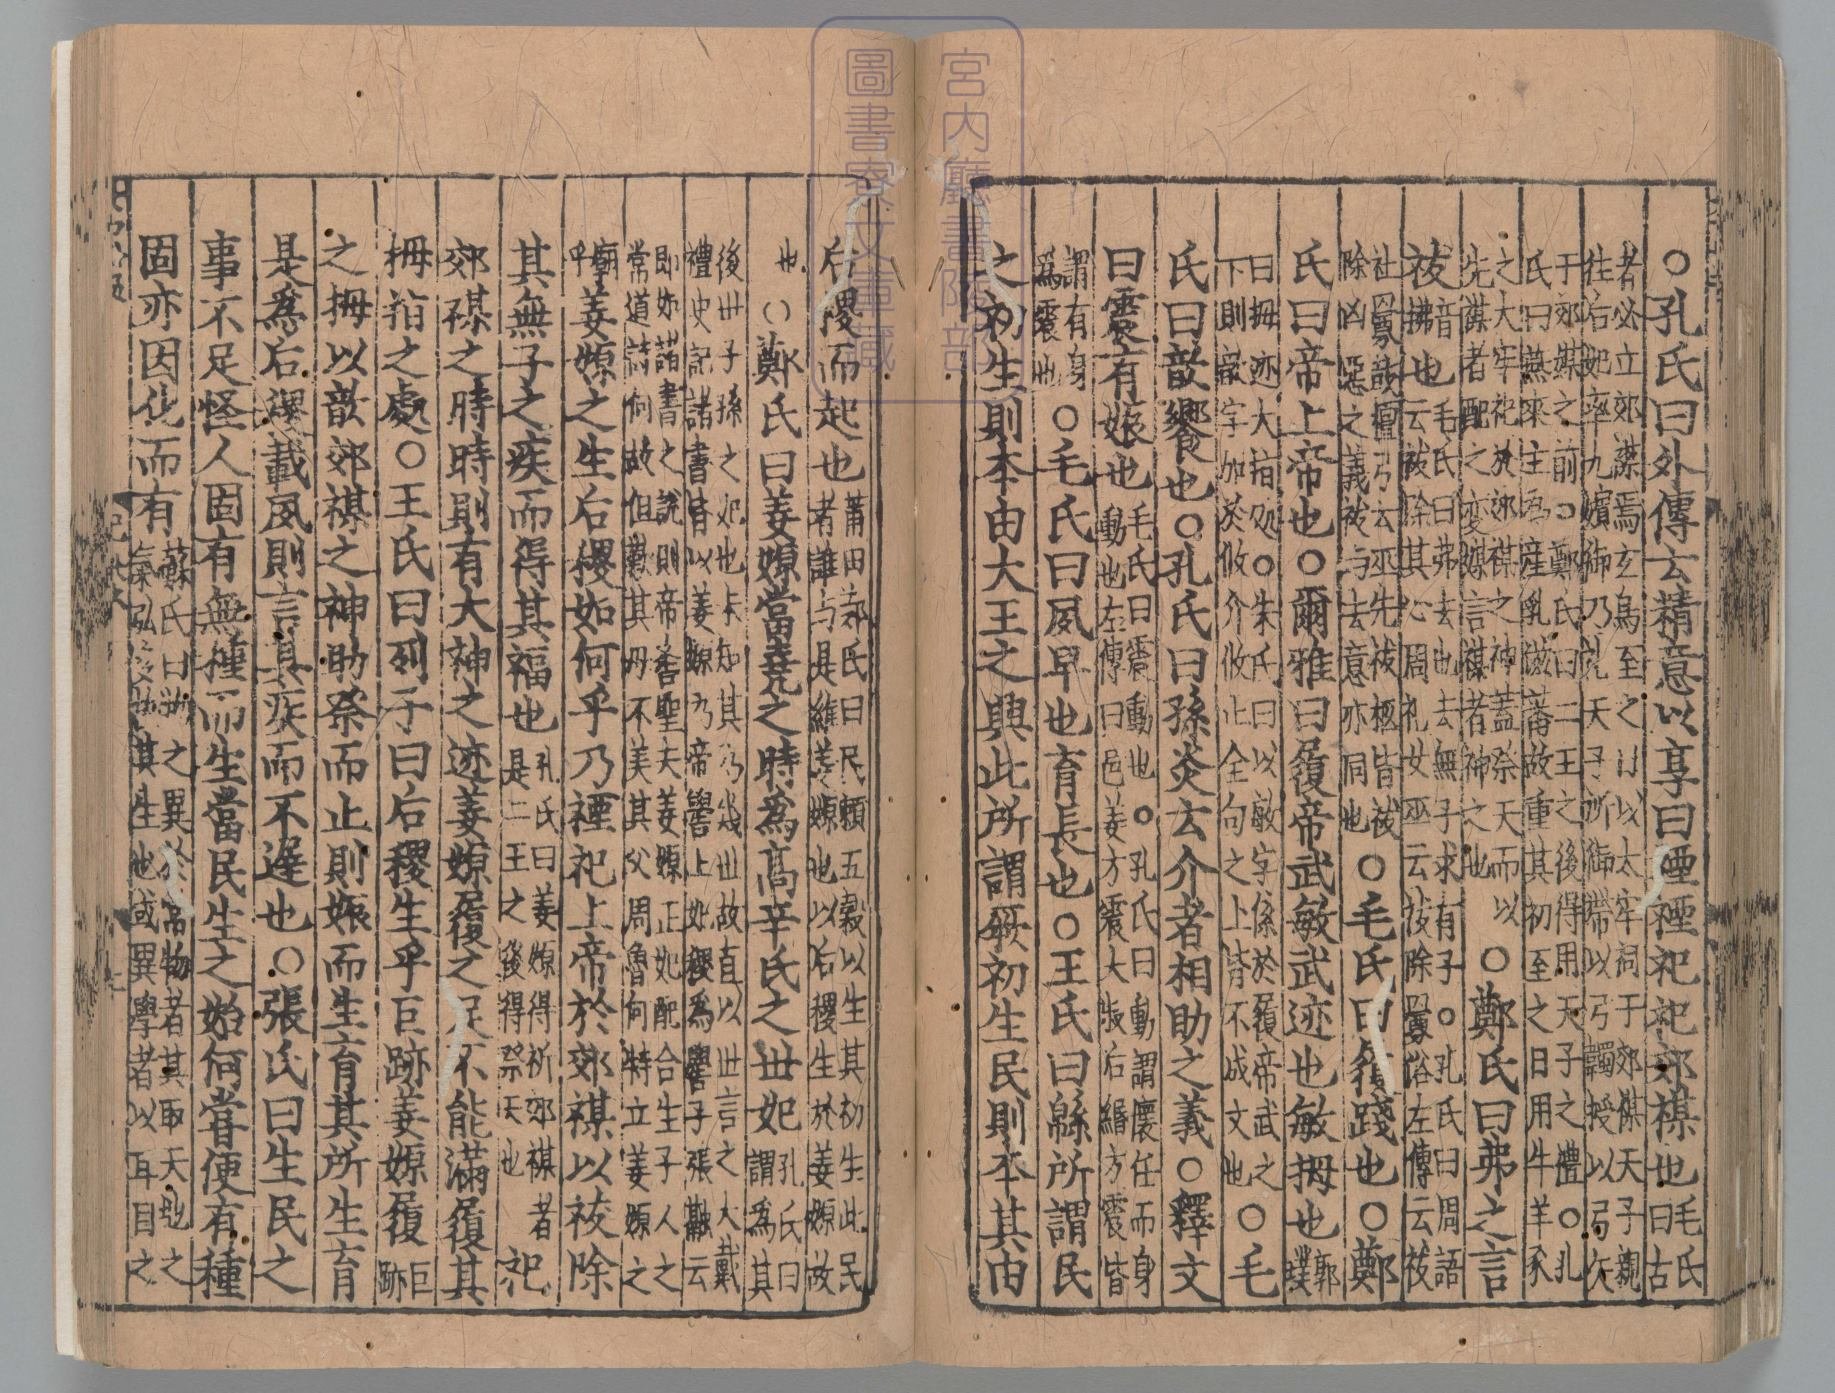 ○孔氏曰外傳云精意以享曰禋禋祀祀郊禖也毛氏曰古
者必立郊禖焉玄鳥至之日以太牢祠于郊禖天子親
往后妃率九嬪御乃礼天子所御帶以弓韣授以弓矢
于郊禖之前○鄭氏曰二王之後得用天子之禮○孔
氏曰燕來主為產乳滋蕃故重其初至之日用牛羊豕
之大牢祀於郊禖之神蓋祭天而以
先禖者配之變媒言禖者神之也
○鄭氏曰弗之言
祓音拂也毛氏曰弗去也去無子求有子○孔氏曰周語
云祓除其心周礼女巫云祓除釁浴左傳云祓
社釁鼓檀弓云巫先祓柩皆祓
除凶惡之義祓与去意亦同也
○毛氏曰履踐也○鄭
氏曰帝上帝也○爾雅曰履帝武敏武迹也敏拇也郭璞
曰拇迹大指処○朱氏曰以敏字係於履帝武之
下則歆字加於攸介攸止全句之上皆不成文也
○毛
氏曰歆饗也○孔氏曰孫炎云介者相助之義○釋文
曰震有娠也毛氏曰震動也○孔氏曰動謂懷任而身
動也左傳曰邑姜方震大叔后緡方震皆
謂有身
為震也
○毛氏曰夙早也育長也○王氏曰緜所謂民
之初生則本由大王之興此所謂厥初生民則本其由
后稷而起也莆田鄭氏曰民賴五穀以生其初生此民
者誰与是維姜嫄也以后稷生於姜嫄故
也
○鄭氏曰姜嫄當堯之時為高辛氏之世妃孔氏曰
謂為其
後世子孫之妃也未知其乃幾世故直以世言之大戴
禮史記諸書皆以姜嫄乃帝嚳上妃稷為嚳子張融云
即如諸書之說則帝嚳聖夫姜嫄正妃配合生子人之
常道詩何故但歎其母不美其父周魯何特立姜嫄之
廟
乎
姜嫄之生后稷如何乎乃禋祀上帝於郊禖以祓除
其無子之疾而得其福也孔氏曰姜嫄得祈郊禖者
是二王之後得祭天也
祀
郊禖之時時則有大神之迹姜嫄履之足不能滿履其
拇指之處○王氏曰列子曰后稷生乎巨跡姜嫄履巨
跡
之拇以歆郊禖之神助祭而止則娠而生育其所生育
是為后稷載夙則言其疾而不遲也○張氏曰生民之
事不足怪人固有無種而生當民生之始何嘗便有種
固亦因化而有蘇氏曰物之異於常物者其取天地之
氣弘多故其生也或異學者以耳目之